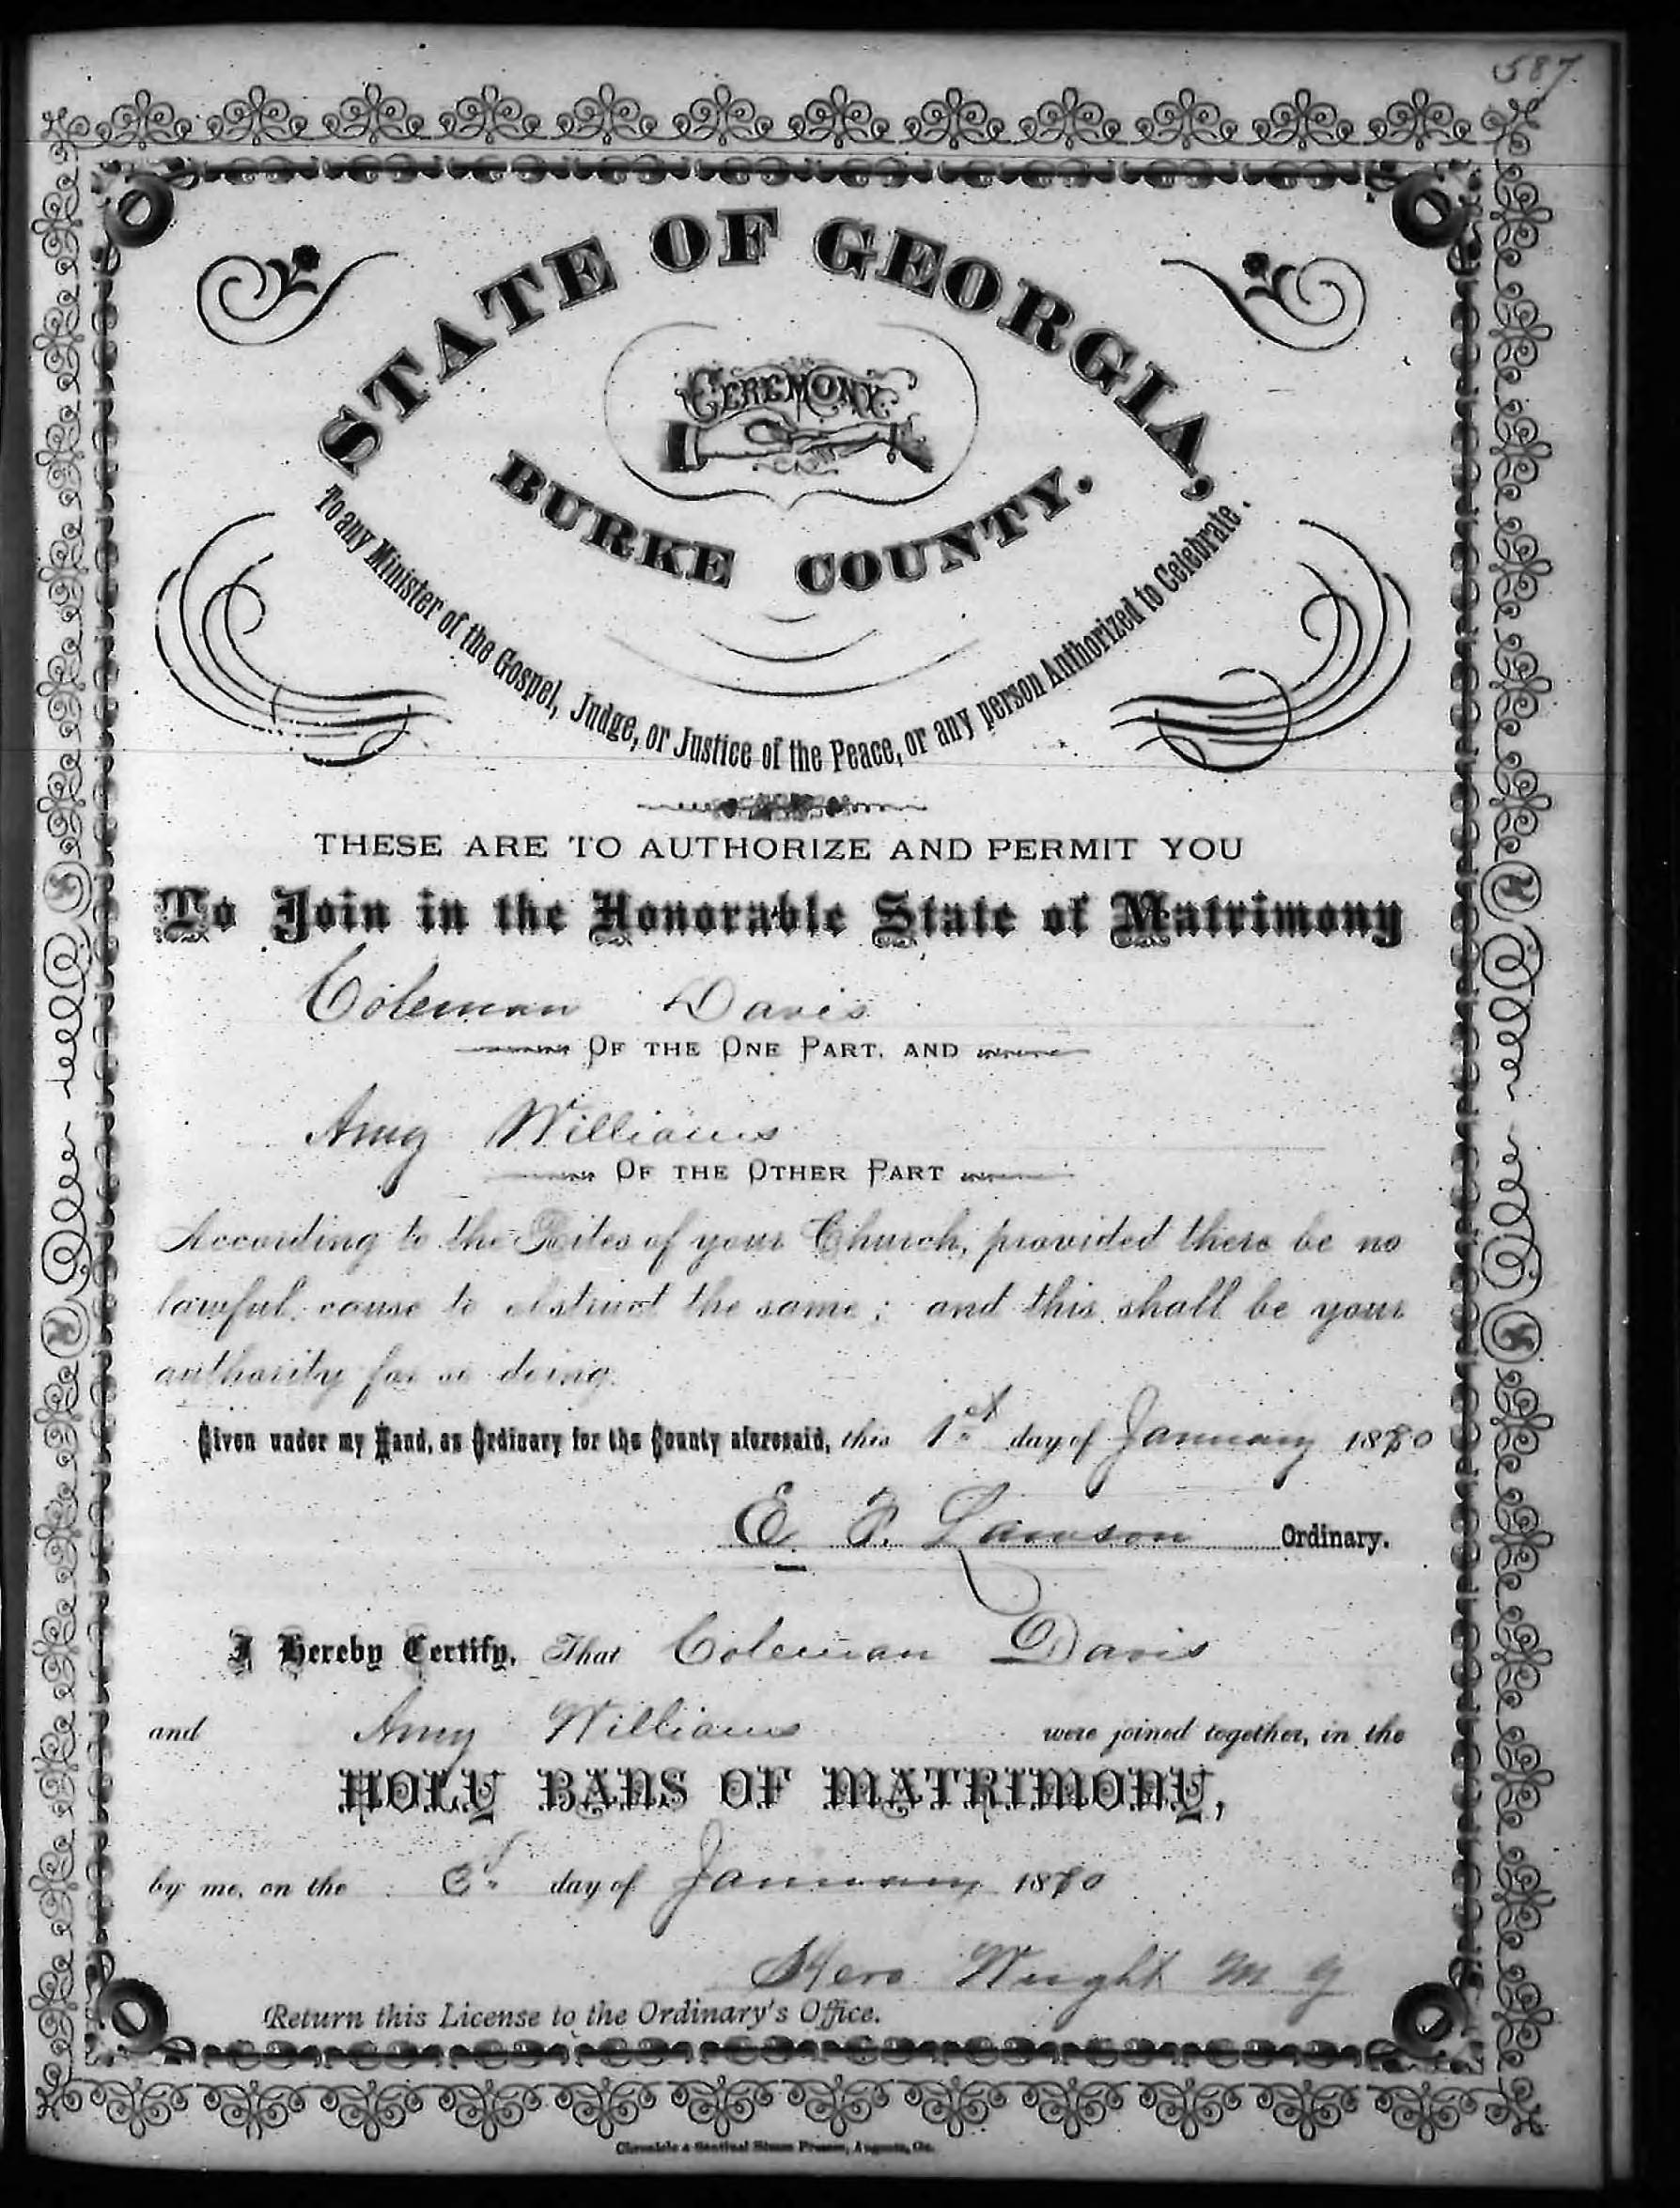 587
STATE OF GEORGIA,
CEREMONY
BURKE COUNTY.
To any Minister of the Gospel, Judge, or Justice of the Peace, or any person Authorized to Celebrate.
THESE ARE TO AUTHORIZE AND PERMIT YOU
To Join in the Honorable State of Matrimony
Coleman Davis
OF THE ONE PART, AND
Amy Williams
OF THE OTHER PART
According to the Rites of your Church, provided there be no
lawful cause to obstruct the same; and this shall be your
authority for so doing.
Given under my Hand, as Ordinary for the County aforesaid, this 1st day of January 1880
E. F. Lawson Ordinary.
I Hereby Certify, That Coleman Davis
and Amy Williams were joined together, in the
HOLY BANS OF MATRIMONY,
by me, on the day of January 1880
Wright M G
Return this License to the Ordinary's Office.
Chronicle & Sentinel Steam Presses, Augusta, Ga.